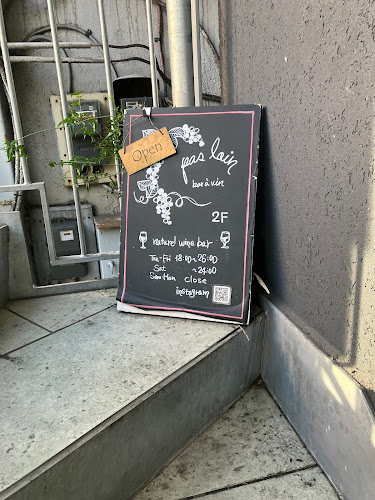 Open
pas loin
bar à vin
2F
naturel wine bar
Tue-Fri 18:00~26:00
Sat ~24:00
Sun Mon close
instagram